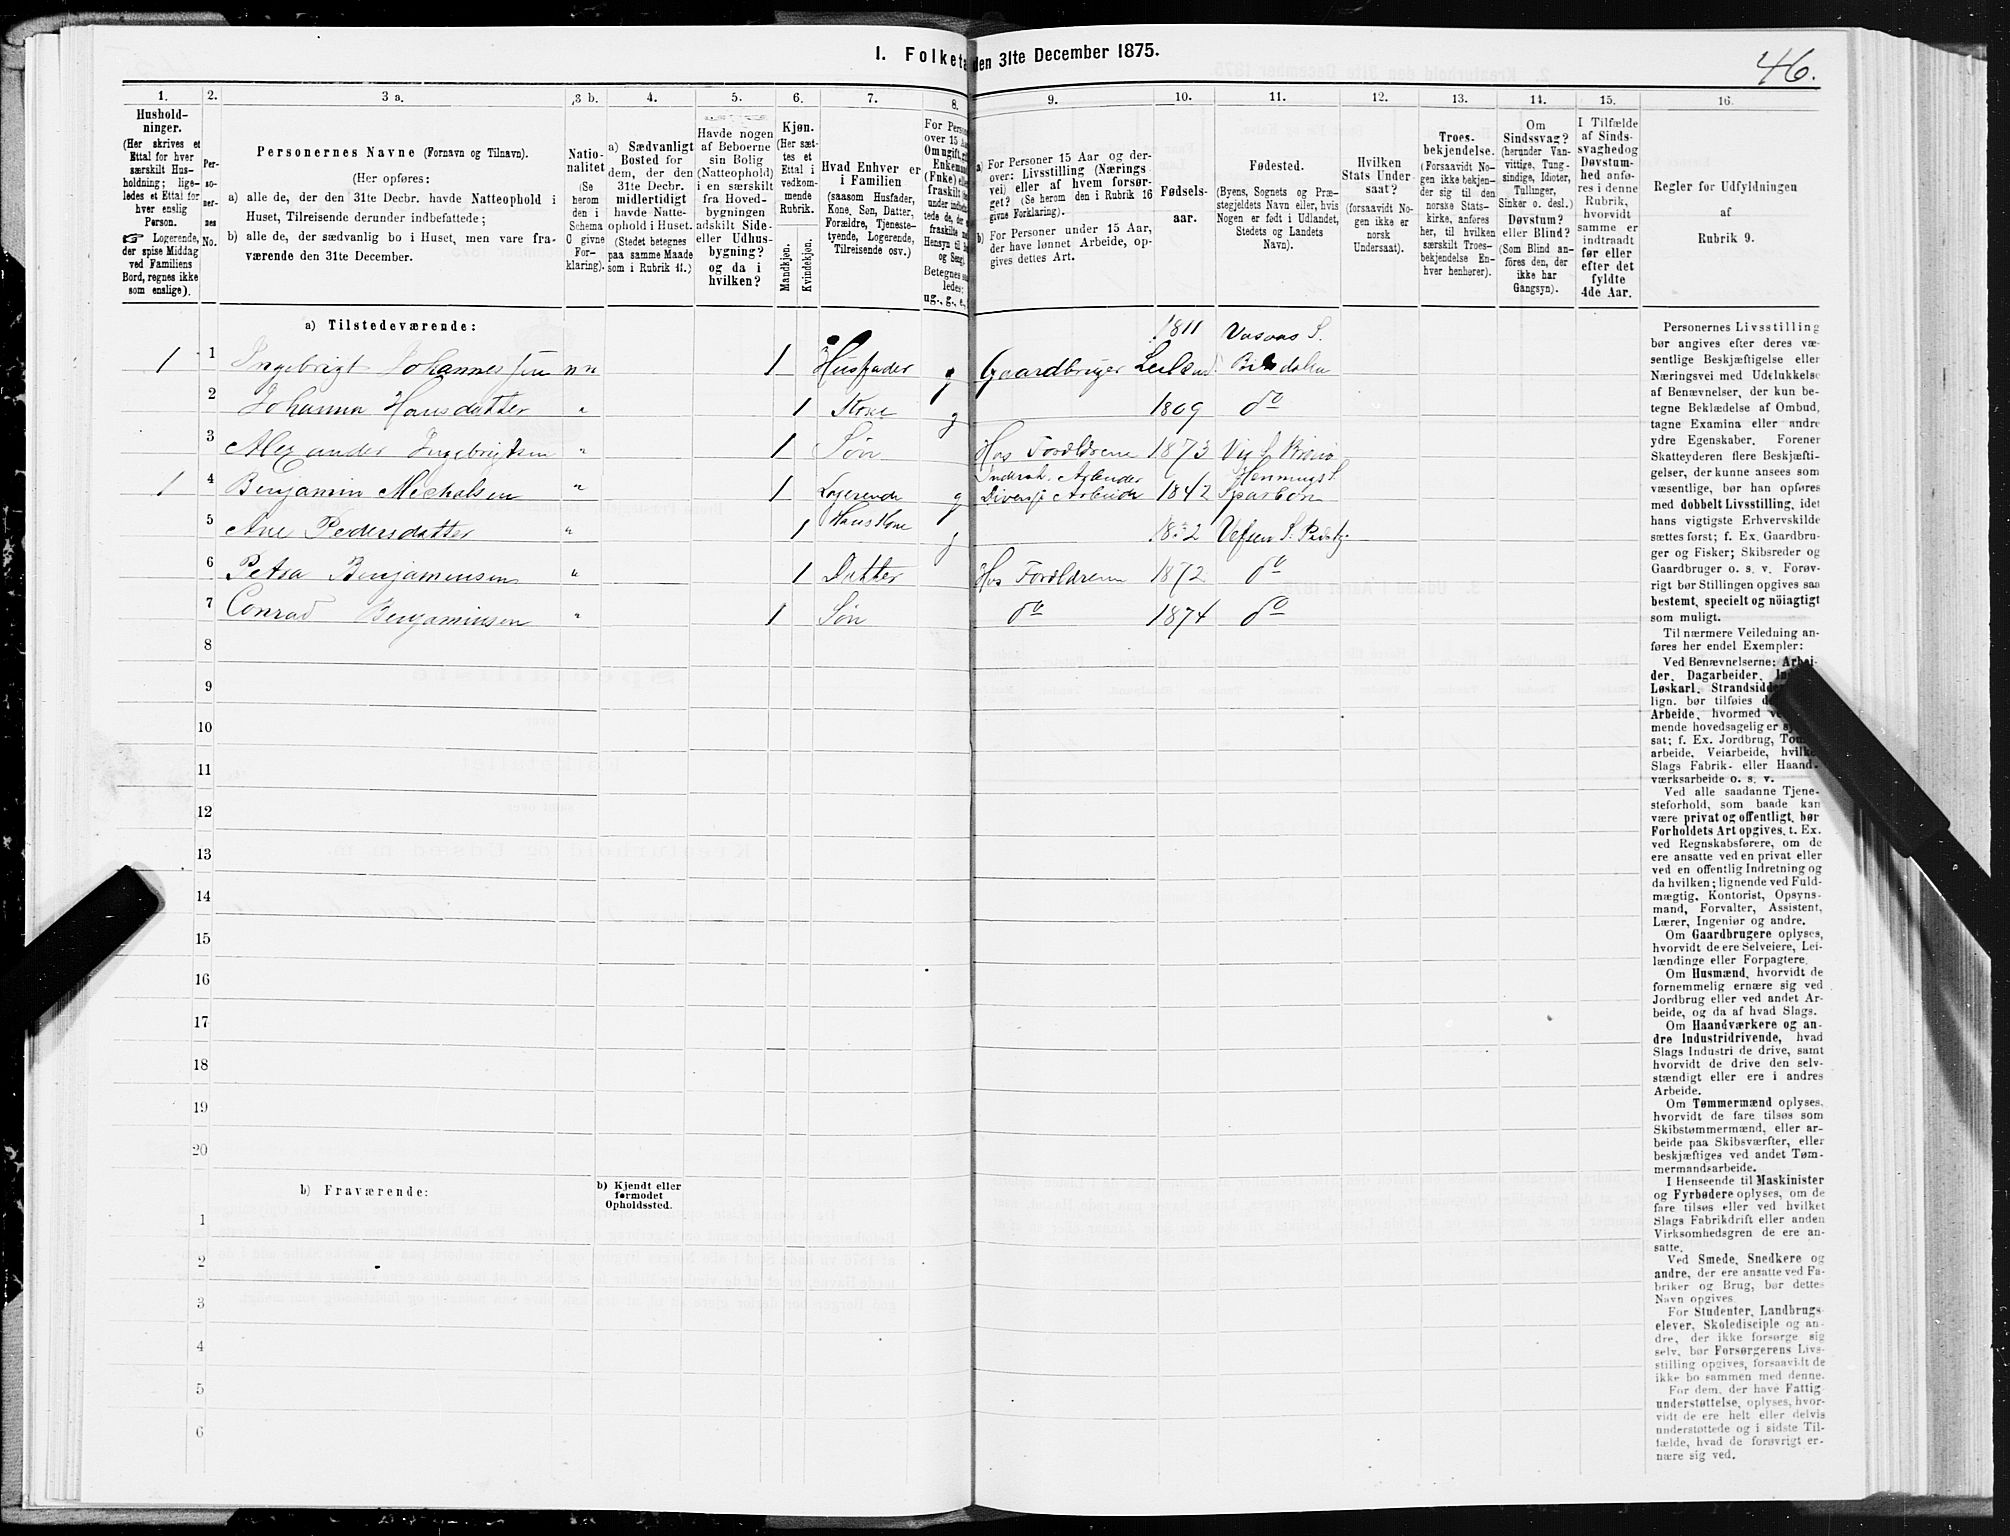 I. Folketa den 31te December 1875.
46.
1. 2. 3 a. 3 b. 4. 5. 6. 7. 8. 9. 10. 11. 12. 13. 14. 15. 16.
Hushold-
ninger.
(Her skrives et
Ettal for hver
særskilt Hus-
holdning; lige-
ledes et Ettal for
hver enslig
Person.
☞ Logerende,
der spise Middag
ved Familiens
Bord, regnes ikke
som enslige).
Per-
so-
ner-
nes
No.
Personernes Navne (Fornavn og Tilnavn).
(Her opføres:
a) alle de, der den 31te Decbr. havde Natteophold i
Huset, Tilreisende derunder indbefattede;
b) alle de, der sædvanlig bo i Huset, men vare fra-
værende den 31te December.
Natio-
nalitet
(Se
herom
den i
Schema
O givne
For-
klaring).
a) Sædvanligt
Bosted for
dem, der den
31te Decbr.
midlertidigt
havde Natte-
ophold i Huset.
(Stedet betegnes
paa samme Maade
som i Rubrik 11.)
Havde nogen
af Beboerne
sin Bolig
(Natteophold)
i en særskilt
fra Hoved-
bygningen
adskilt Side-
eller Udhus-
bygning?
og da i
hvilken?
Kjøn.
(Her sæt-
tes et
Ettal i
vedkom-
mende
Rubrik.
Mandkjøn.
Kvindekjøn.
Hvad Enhver er
i Familien
(saasom Husfader,
Kone, Søn, Datter,
Forældre, Tjeneste-
tyende, Logerende,
Tilreisende osv.)
For Person
over 15 Aa
Om ugift, gi
Enkeman
(Enke) elle
fraskilt
Betegnes saa
ledes:
ug., g., e.,
a) For Personer 15 Aar og der-
over: Livsstilling (Nærings-
vei) eller af hvem forsør-
get? (Se herom den i Rubrik 16
givne Forklaring).
b) For Personer under 15 Aar,
der have lønnet Arbeide, op-
gives dettes Art.
Fødsels-
aar.
Fødested.
(Byens, Sognets og Præ-
stegjeldets Navn eller, hvis
Nogen er født i Udlandet,
Stedets og Landets
Navn).
Hvilken
Stats Under-
saat?
(forsaavidt No-
gen ikke er
norsk
Undersaat).
Troes-
bekjendelse.
(Forsaavidt No-
gen ikke bekjen-
der sig til den
norske Stats-
kirke, anføres
her, til hvilken
særskilt Troes-
bekjendelse En-
hver henhører).
Om
Sindssvag?
(herunder Van-
vittige, Tung-
sindige, Idioter,
Tullinger,
Sinker o. desl.)
Døvstum?
eller Blind?
(Som Blind an-
føres den, der
ikke har
Gangsyn).
I Tilfælde
af Sinds-
svaghed og
Døvstum-
hed anfø-
res i denne
Rubrik,
hvorvidt
samme er
indtraadt
før eller
efter det
fyldte
4de Aar.
Regler for Udfyldningen
af
Rubrik 9.
a) Tilstedeværende:
1811
1 1 Ingebrigt Johannessen nn 1 Husfader g Gaardbruger
2 Johanna Hansdatter " 1 Kone g 1809 do
3 Alexander Ingebrigtsen " 1 Søn Hos Forældrene 1873
1 4 Benjamin Michalsen " 1 Logerende g Diverse Arbeide 1842 Sparbøen
5 Ane Pedersdatter " 1 Hans Kone g Vefsen
6 Petra Benjaminsen " 1 Datter Hos Forældrene 1872 do
7 Conrad Benjaminsen " 1 Søn do 1874 do
8
9
10
11
12
13
14
15
16
17
18
19
20
b) Fraværende:
b) Kjendt eller
formodet
Opholdssted.
1
2
3
4
5
6
Personernes Livsstilling
bør angives efter deres væ-
sentlige Beskjæftigelse eller
Næringsvei med Udelukkelse
af Benævnelser, der kun be-
tegne Beklædelse af Ombud,
tagne Examina eller andre
ydre Egenskaber. Forener
Skatteyderen flere Beskjæfti-
gelser, der kunne ansees som
væsentlige, bør han opføres
med dobbelt Livsstilling, idet
hans vigtigste Erhvervskilde
sættes først; f. Ex. Gaardbru-
ger og Fisker; Skibsreder og
Gaardbruger o. s. v. Forøv-
rigt bør Stillingen opgives saa
bestemt, specielt og nöiagtigt
som muligt.
Til nærmere Veiledning an-
føres her endel Exempler:
Ved Benævnelserne: Arbei-
der, Dagarbeider,
Løskarl, Strandsidder
lign. bør tilføies
Arbeide, hvormed
mende hovedsagelig er
sat; f. Ex. Jordbrug,
arbeide, Veiarbeide,
Slags Fabrik- eller Haand-
værksarbeide o. s. v.
Ved alle saadanne Tjene-
steforhold, som baade kan
være privat og offentligt, bør
Forholdets Art opgives, t. Ex.
ved Regnskabsførere, om de
ere ansatte ved en privat eller
ved en offentlig Indretning og
da hvilken; lignende ved Fuld-
mægtig, Kontorist, Opsyns-
mand, Forvalter, Assistent,
Lærer, Ingeniør og andre.
Om Gaardbrugere oplyses,
hvorvidt de ere Selveiere, Lei-
lændinge eller Forpagtere.
Om Husmænd, hvorvidt de
fornemmelig ernære sig ved
Jordbrug eller ved andet Ar-
beide, og da af hvad Slags.
Om Haandværkere og an-
dre Industridrivende, hvad
Slags Industri de drive, samt
hvorvidt de drive den selv-
stændigt eller ere i andres
Arbeide.
Om Tømmermænd oplyses,
hvorvidt de fare tilsøs som
Skibstømmermænd, eller ar-
beide paa Skibsværfter, eller
beskjæftiges ved andet Tøm-
mermandsarbeide.
I Henseende til Maskinister
og Fyrbødere oplyses, om de
fare tilsøs eller ved hvilket
Slags Fabrikdrift eller anden
Virksomhedsgren de ere an-
satte.
Ved Smede, Snedkere og
andre, der ere ansatte ved Fa-
briker og Brug, bør dettes
Navn opgives
For Studenter, Landbrugs-
elever, Skoledisciple og an-
dre, der ikke forsørge sig
selv, bør Forsørgerens Livs-
stilling opgives, forsaavidt de
ikke bo sammen med denne.
For dem, der have Fattig-
understøttelse, oplyses, hvor-
vidt de ere helt eller delvis
understøttede og i sidste Til-
fælde, hvad de forøvrigt er-
nære sig ved.